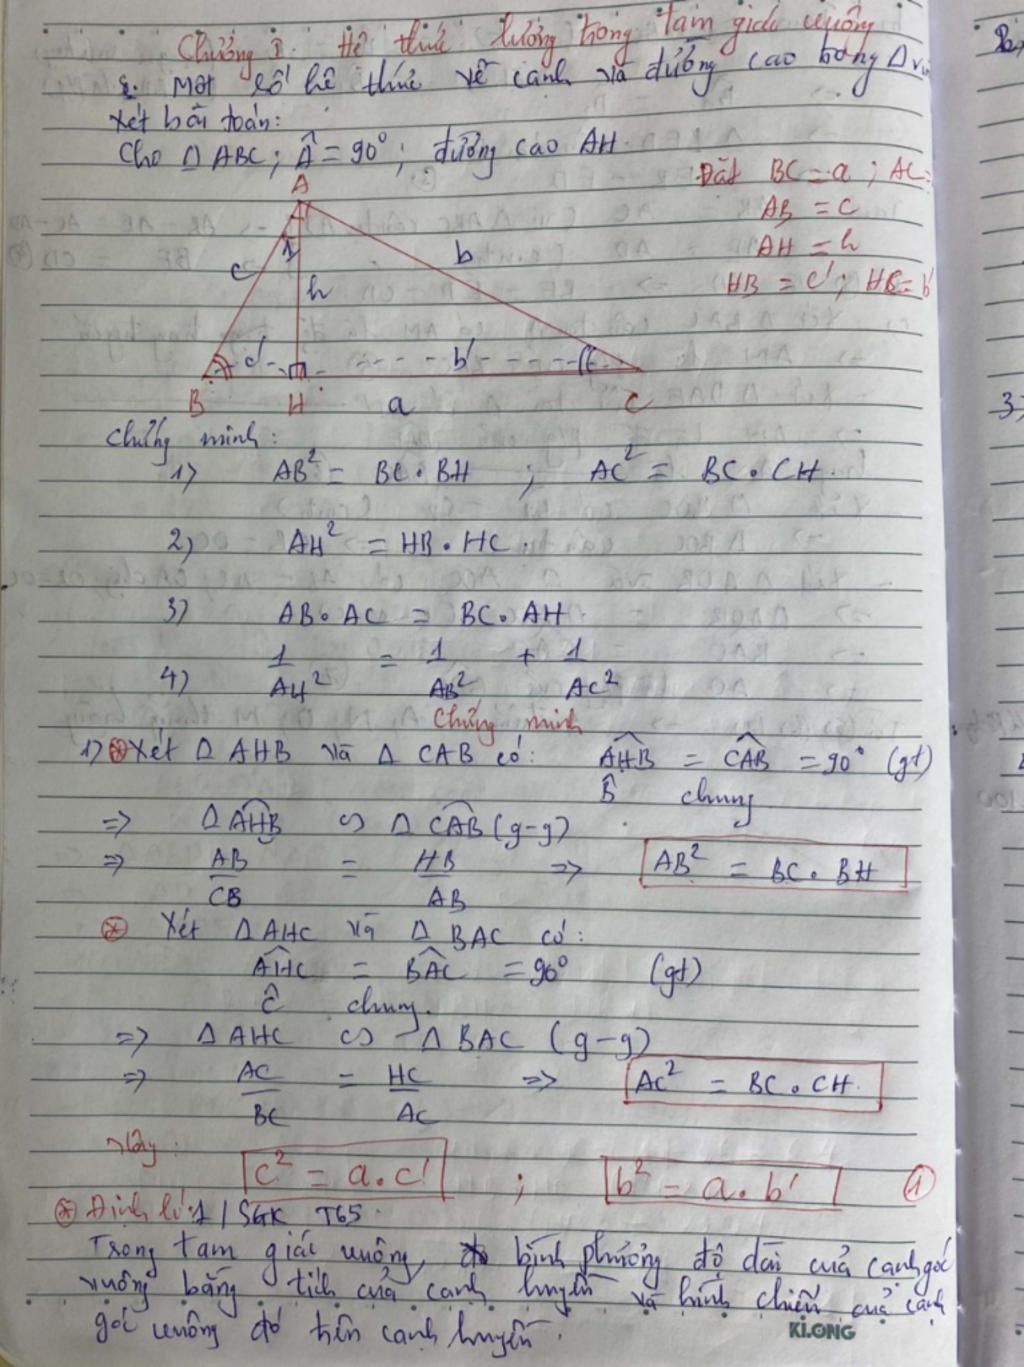 Chương I. Hệ thức lượng trong tam giác vuông
§. Một số hệ thức về cạnh và đường cao trong Δ
Xét bài toán:
Cho Δ ABC; Â = 90°; đường cao AH.
Đặt BC = a; AC =
AB = c
AH = h
HB = c'; HC = b'
A
1
c
b
h
c'
b'
B
H
a
C
Chứng minh:
1) AB² = BC . BH ; AC² = BC . CH.
2) AH² = HB . HC.
3) AB . AC = BC . AH
4) 1/AH² = 1/AB² + 1/AC²
Chứng minh
1) * Xét Δ AHB và Δ CAB có: AHB = CAB = 90° (gt)
B̂ chung
=> Δ AHB ∽ Δ CAB (g-g)
=> AB/CB = HB/AB => AB² = BC . BH
* Xét Δ AHC và Δ BAC có:
AHC = BAC = 90° (gt)
Ĉ chung.
=> Δ AHC ∽ Δ BAC (g-g)
=> AC/BC = HC/AC => AC² = BC . CH.
Vậy:
c² = a.c' ; b² = a.b' ①
* Định lí 1 / SGK T65.
Trong tam giác vuông, bình phương độ dài của cạnh góc
vuông bằng tích của cạnh huyền và hình chiếu của cạnh
góc vuông đó trên cạnh huyền.
KLONG
3)